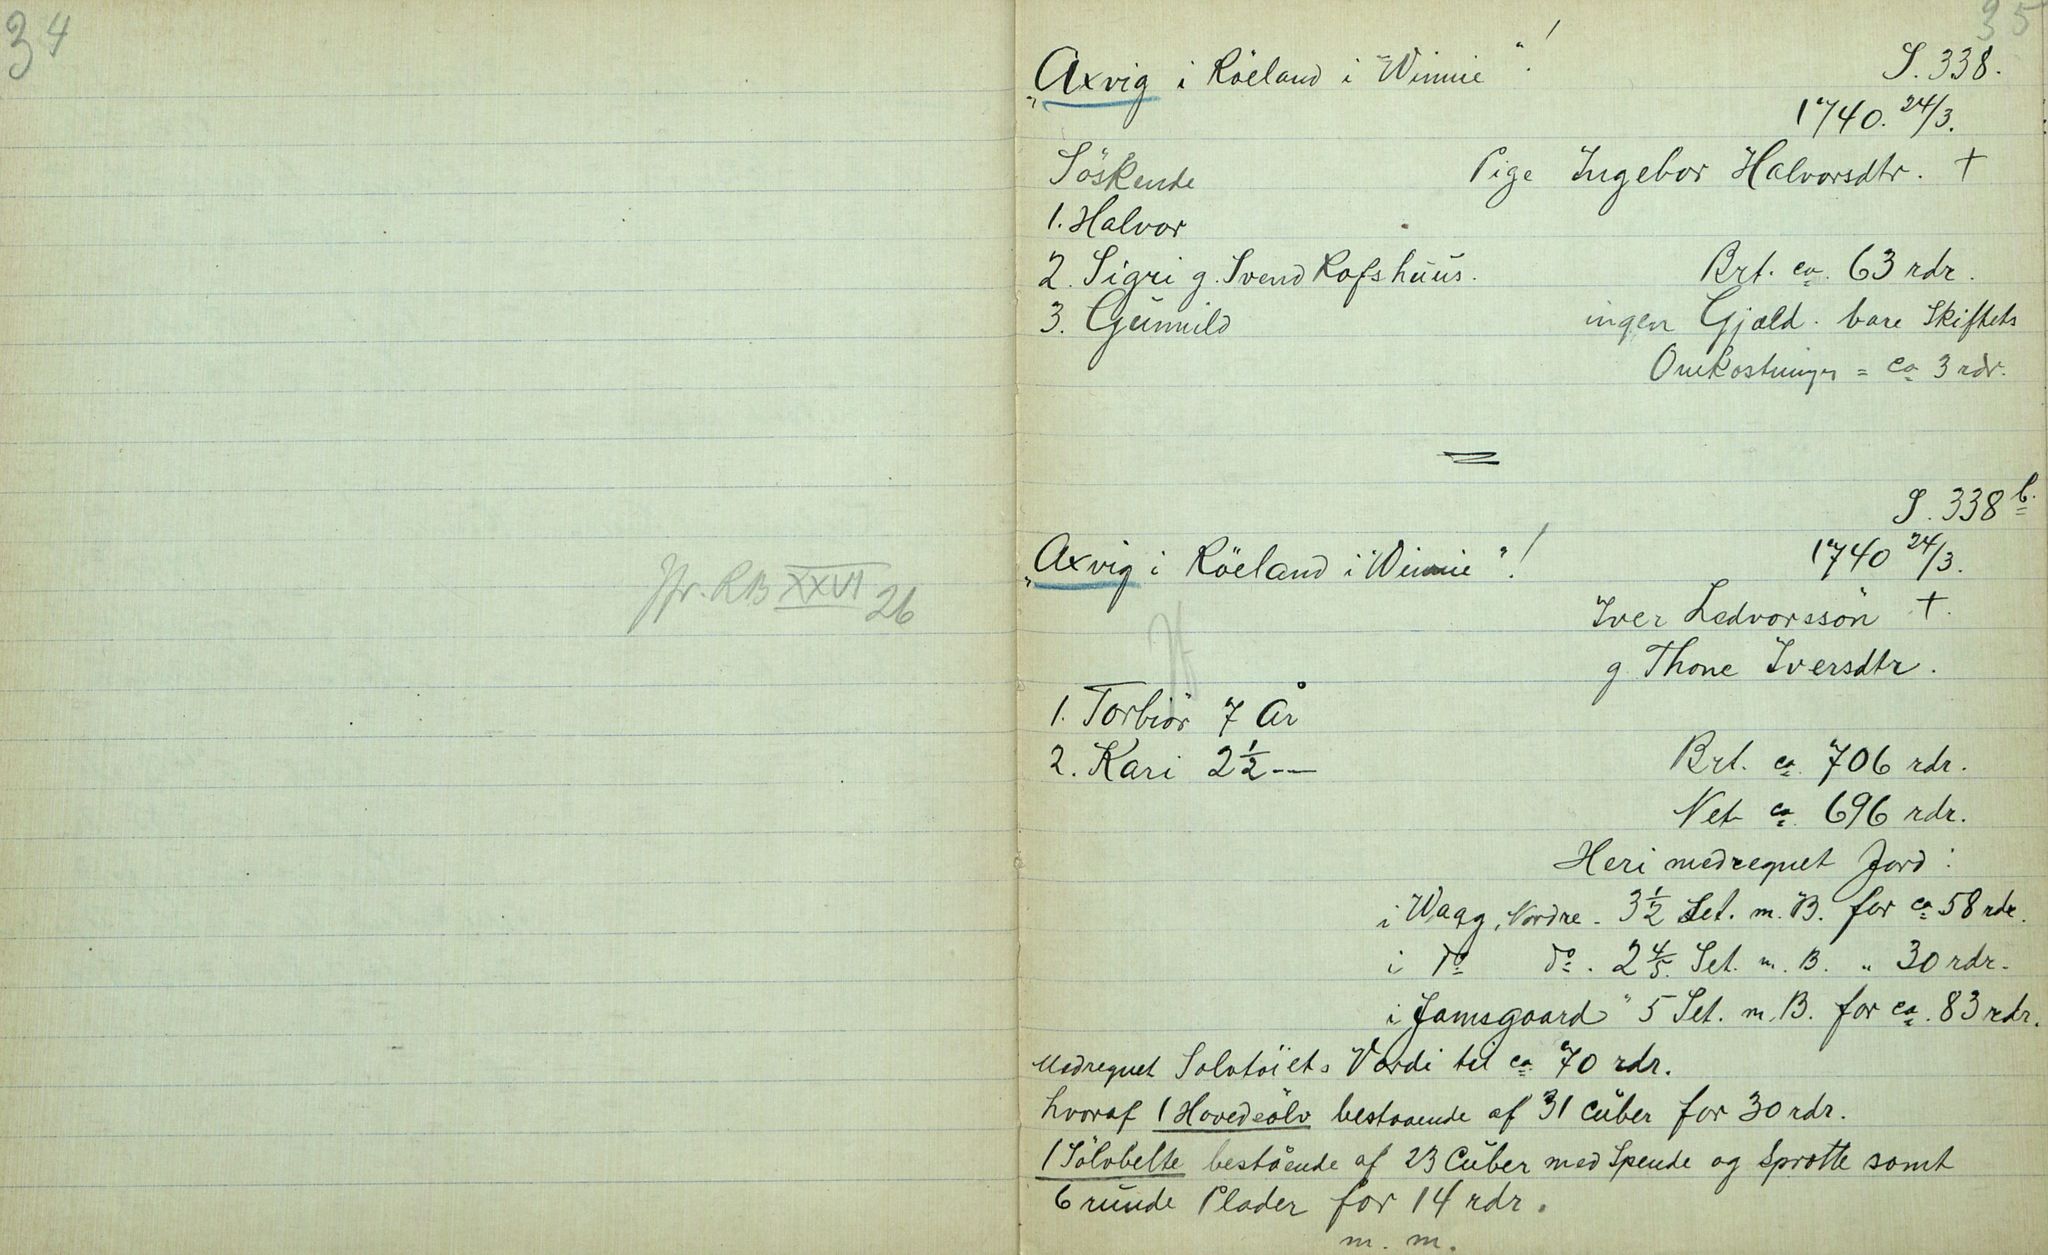 34
Jfr. RB XXVI 26
35
„Axvig i Röeland i "Winnie"!
S. 338.
1740. 24/3.
Söskende
Pige Ingebor Halvorsdtr. †
1. Halvor
2. Sigri g. Svend Rofshuus.
Brt. ca. 63 rdr.
3. Gunnild
ingen Gjæld. bare Skiftets
Omkostninger = ca 3 rdr.
S. 338 b.
„Axvig i Röeland i "Winnie"!
1740 24/3.
Iver Ledvorssön †.
g. Thone Iversdtr.
1. Torbiör 7 År
2. Kari 2½ —
Brt. ca. 706 rdr.
Net ca. 696 rdr.
Heri medregnet Jord:
i Waag, Nordre - 3½ Set. m. B. for ca 58 rdr.
i do do. 2 4/5 Set. m. B. „ 30 rdr.
i Jamsgaard" 5 Set. m. B. for ca. 83 rdr.
Medregnet Solvtöiets Verdi til ca. 70 rdr.
hvoraf 1 Hovedsölv bestaaende af 31 Cuber for 30 rdr.
1 Sölvbelte bestående af 23 Cuber med Spende og Sprotte samt
6 runde Plader for 14 rdr.
m. m.